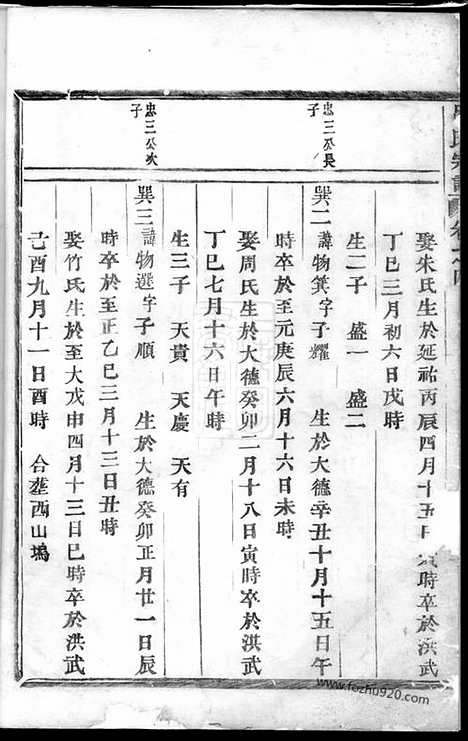 氏宗譜
娶朱氏生於延祐丙辰四月十五日 時卒於洪武
丁巳三月初六日戌時
生二子 盛一 盛二
忠三公長子
巽二 諱物箕字子耀 生於大德辛丑十月十五日午
時卒於至元庚辰六月十六日未時
娶周氏生於大德癸卯二月十八日寅時卒於淇武
丁巳七月十六日午時
生三子 天貴 天慶 天有
忠三公次子
巽三 諱物選字子順 生於大德癸卯正月廿一日辰
時卒於至正乙巳三月十三日丑時
娶竹氏生於至大戊申四月十三日巳時卒於洪武
己酉九月十一日酉時 合塟西山塢
www.fozhu920.com